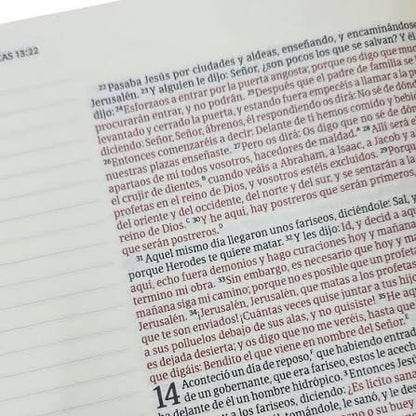 CAS 13:22
22 Pasaba Jesús por ciudades y aldeas, enseñando, y encaminándose
Jerusalén. 23 Y alguien le dijo: Señor, ¿son pocos los que se salvan? Y él
dijo: 24 Esforzaos a entrar por la puerta angosta; porque os digo que mu
procurarán entrar, y no podrán. 25 Después que el padre de familia se
levantado y cerrado la puerta, y estando fuera empecéis a llamar a la p
diciendo: Señor, Señor, ábrenos, él respondiendo os dirá: No sé de dónd
26 Entonces comenzaréis a decir: Delante de ti hemos comido y bebi
nuestras plazas enseñaste. 27 Pero os dirá: Os digo que no sé de dón
apartaos de mí todos vosotros, hacedores de maldad. A 28 Allí será e
el crujir de dientes, B cuando veáis a Abraham, a Isaac, a Jacob y
profetas en el reino de Dios, y vosotros estéis excluidos. 29 Porq
del oriente y del occidente, del norte y del sur, y se sentarán a la
reino de Dios. C 30 Y he aquí, hay postreros que serán primeros,
que serán postreros. D
31 Aquel mismo día llegaron unos fariseos, diciéndole: Sal, y
porque Herodes te quiere matar. 32 Y les dijo: Id, y decid a aq
aquí, echo fuera demonios y hago curaciones hoy y mañana
termino mi obra. 33 Sin embargo, es necesario que hoy y m
mañana siga mi camino; porque no es posible que un profet
Jerusalén. 34 ¡Jerusalén, Jerusalén, que matas a los profetas
que te son enviados! ¡Cuántas veces quise juntar a tus hij
a sus polluelos debajo de sus alas, y no quisiste! 35 He aq
es dejada desierta; y os digo que no me veréis, hasta qu
digáis: Bendito el que viene en nombre del Señor.
14 Aconteció un día de reposo, F que habiendo entrad
de un gobernante, que era fariseo, estos le acech
delante de él un hombre hidrópico. 3 Entonces Jesús
los fariseos, diciendo: ¿Es lícito sana
tomándole, le sanó, y le des